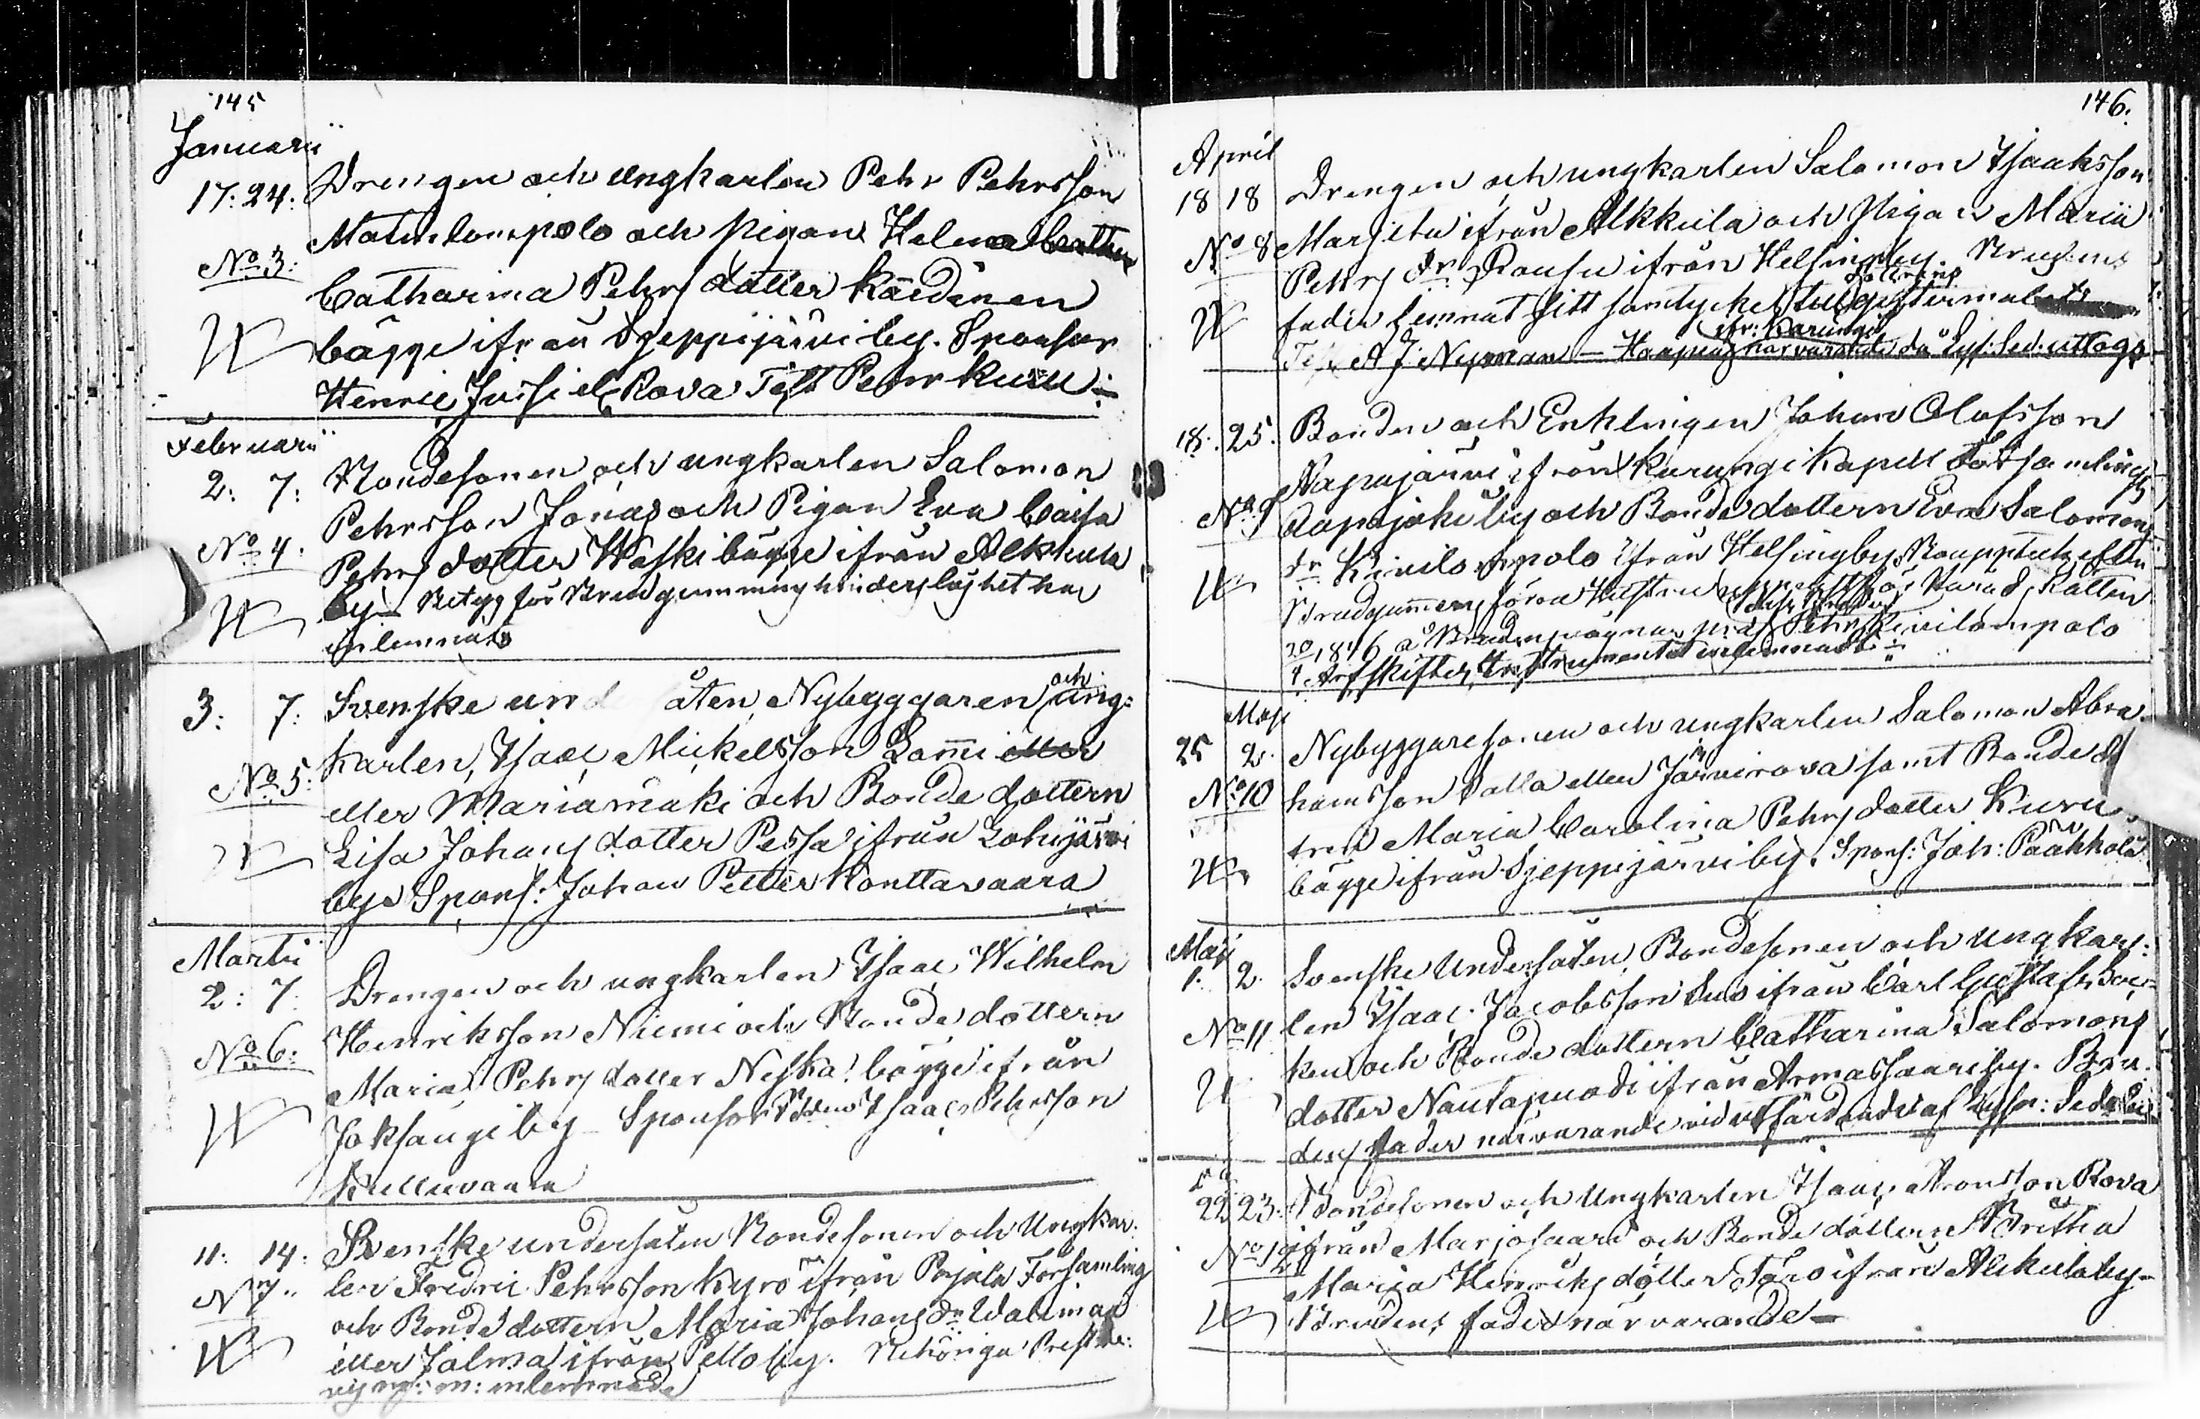 145
Januarii
17: 24: Drengen och ungkarlen Pehr Pehrsson
Matinlompolo och pigan Helena
No 3: Catharina Pehrs dotter
bägge ifrån Sjeppijärvi by. Sponsor
Henric Jussi el. Rova Test Pehr Kuru
Februarii
2: 7: Bondesonen och ungkarlen Salomon
Pehrsson Jonas och Pigan Eva Caisa
No 4. Pehrs dotter Waski bägge ifrån Alkkula
by Betyg för Brudgummens hinderslöshet har
inlemnats
3: 7: Svenske und åten, Nybyggaren och ung=
karlen, Isaac Mickelsson Lammi eller
No 5: eller Mariamaki och Bonde dottern
Lisa Johans dotter Pessa ifrån Lohijärvi
by Spons: Johan Petter Konttavaara
Martii
2: 7. Drengen och ungkarlen Isaac Wilhelm
Henriksson Niemi och Bonde dottern
No 6: Maria Pehrs dotter Neska bägge ifrån
Joksange by Sponsor Isaac Pehrsson
Kulluvaara
11: 14: Svenske undersåten Bondesonen och Ungkar-
No 7. len Fredric Pehrsson Kyrö ifrån Pajala Församling
och Bonde dottern Maria Johans dr
eller Jalma ifrån Pello by. Behöriga
m: m: inlemnade
146.
April
18 18 Drengen och ungkarlen Salomon Isaaksson
No 8 Marjetu ifrån Alkkula och Pigan Maria
Pehrs dr Rausu ifrån Helsingby. Brudens
fader lemnat sitt samtycke till
Test A J Nyman närvarande då Lys: Sed: uttogs
18: 25. Bonden och Enklingen Johan Olofsson
Napajärvi ifrån Karungi Kapell Församlings
No 9 by och Bonde dottern Eva Salomons
dr Kivilompolo ifrån Helsingby. efter
Brudgummens förra Hustru
20/1 1846 å Brudens vägnar Pehr Kivilompolo
Arfskiftes Instrumentet inlemnadt
Maji
25 2. Nybyggaresonen och ungkarlen Salomon Abra-
No 10 hamsson Palla eller Järvirova samt Bonde d
tren Maria Carolina Pehrs dotter Kuru
bägge ifrån Sjeppijärvi by. Spons: Joh: Pääkkölä
Maji
1. 2. Svenske Undersåten, Bondesonen och ungkar-
No 11 len Isaac Jacobsson ifrån Carl Gustafs Soc-
ken och Bonde dottern Catharina Salomons
dotter Nautapuodi ifrån Armassaari by. Bru-
dens fader närvarande vid utfärdandet af Lysn: Sedeln
22 23. Bondesonen och Ungkarlen Isaac Aronsson Rova
No 12 ifrån Marjosaari och Bonde dottern Britha
Maria Henriks dotter ifrån Alkkula by.
Brudens fader närvarande